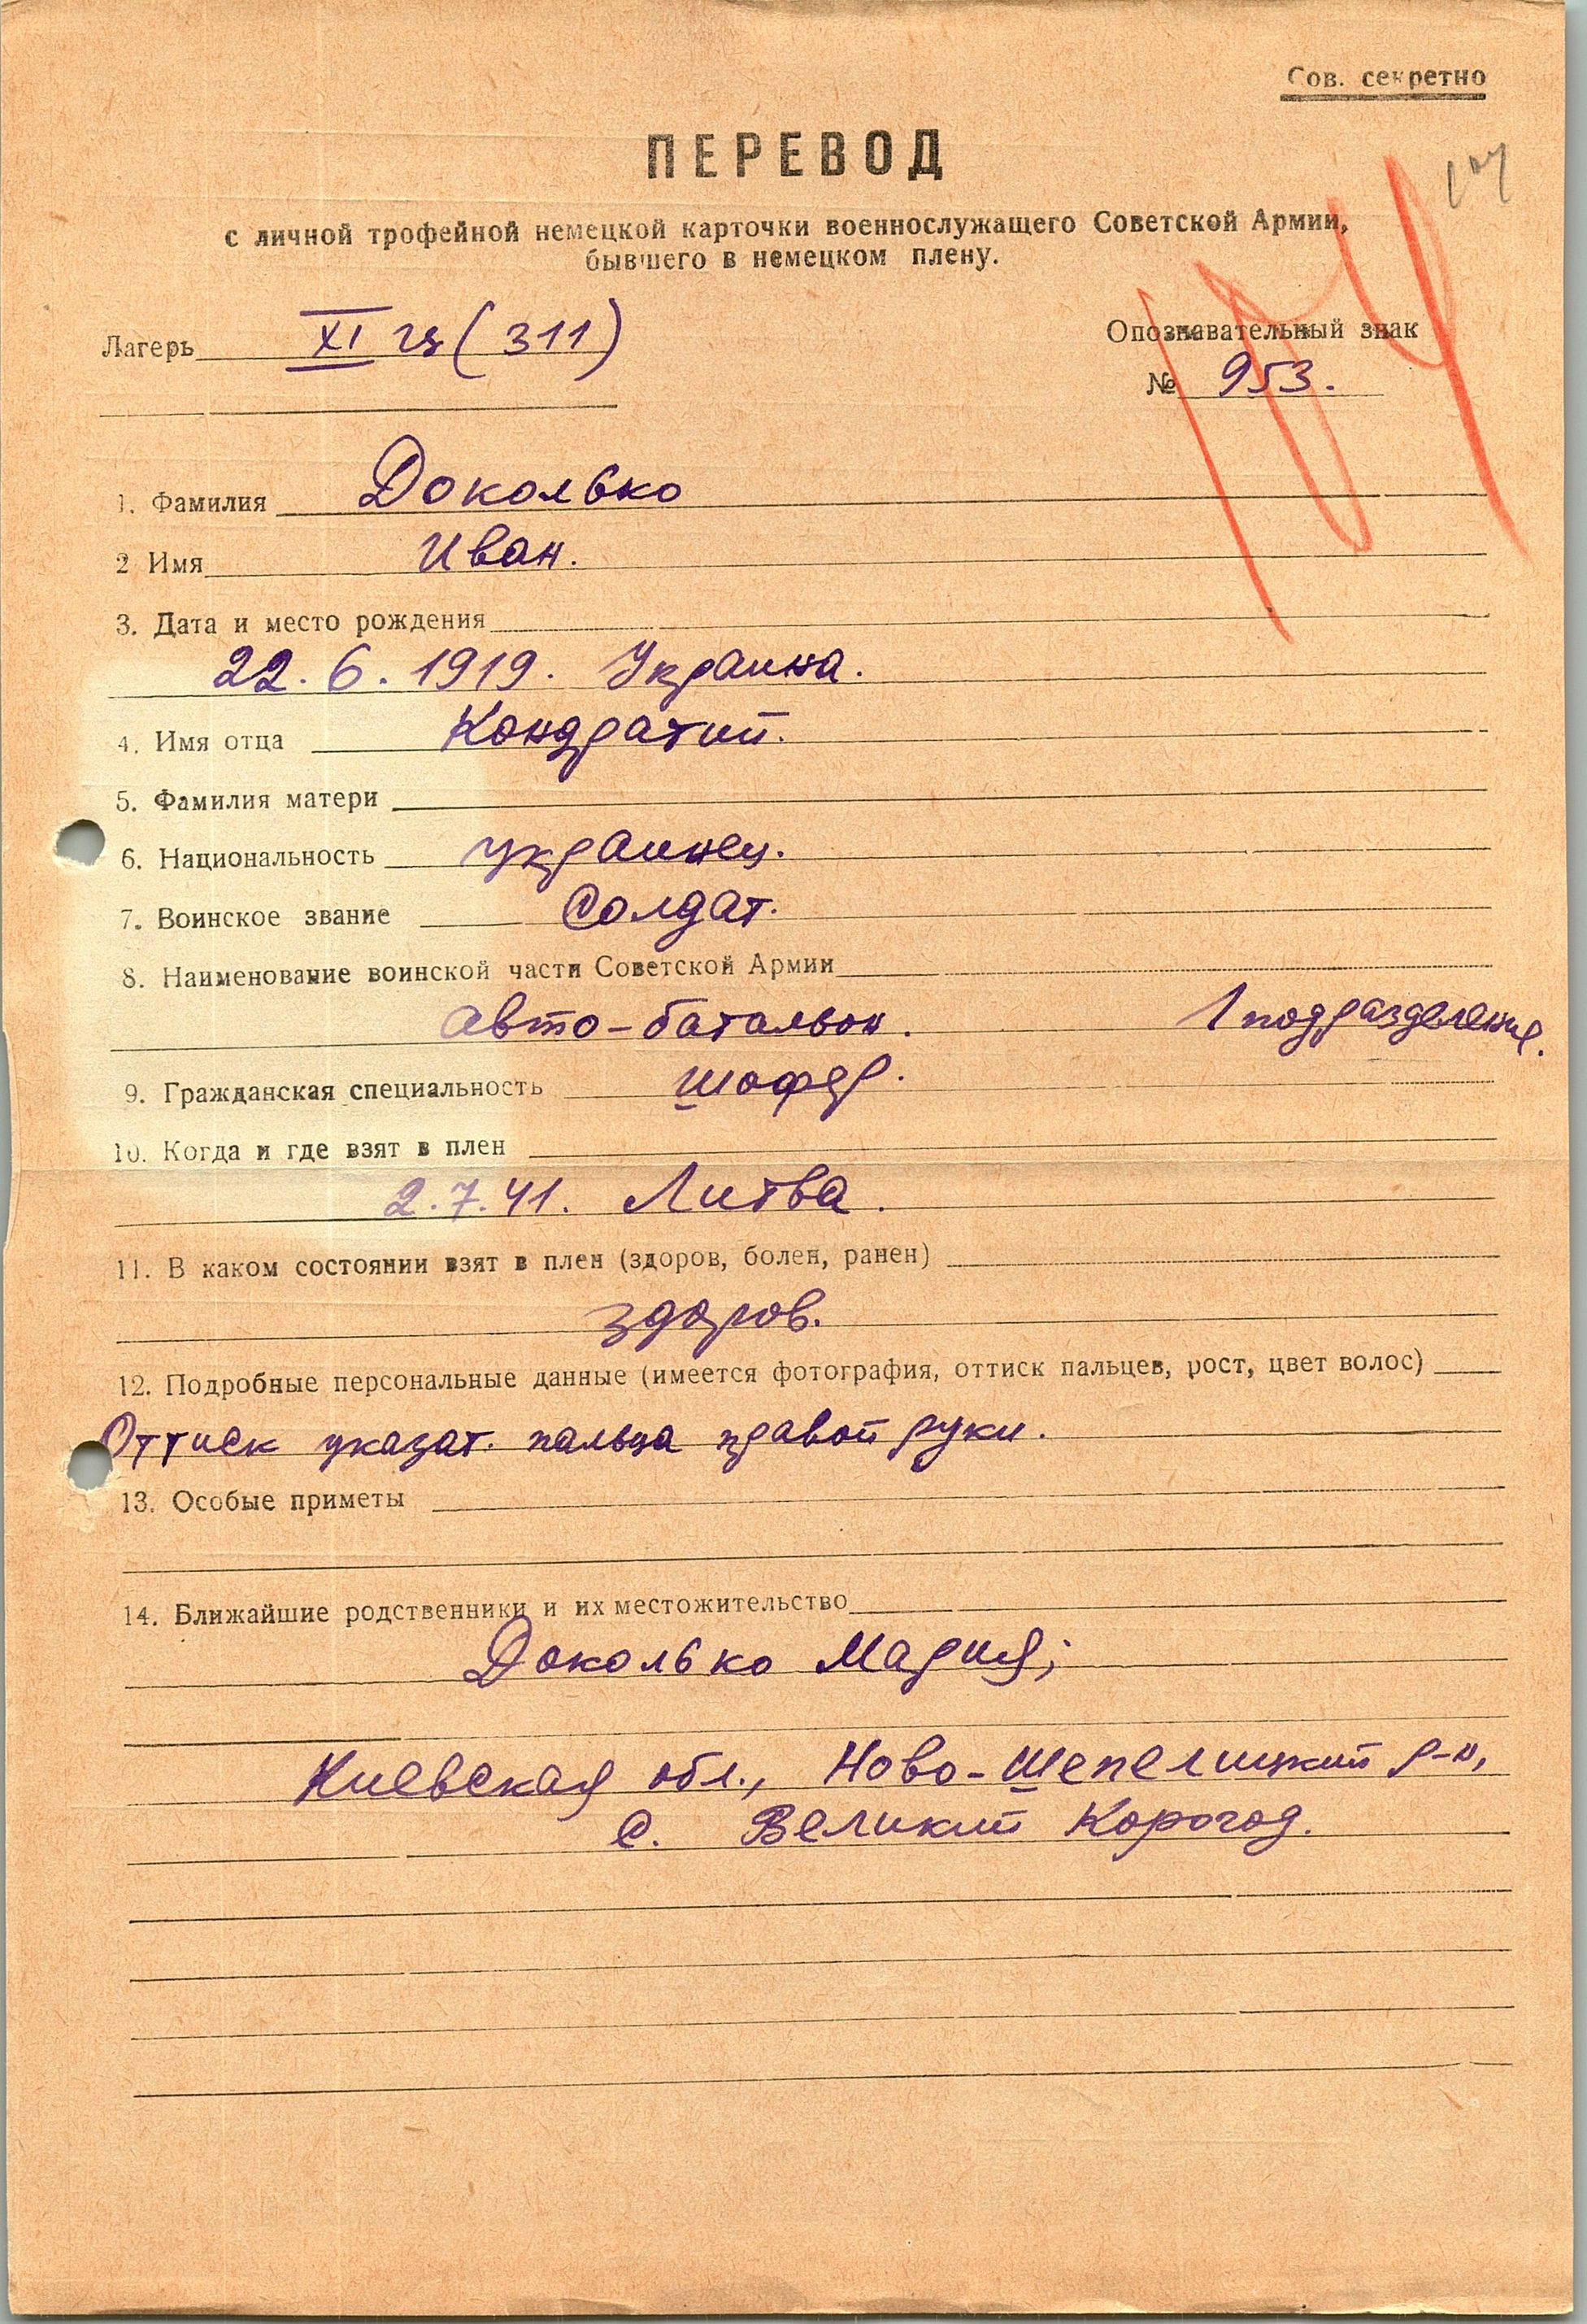 Сов. секретно
ПЕРЕВОД
с личной трофейной немецкой карточки военнослужащего Советской Армии,
бывшего в немецком плену.
Лагерь XI ц (311)
Опознавательный знак
№ 953.
1. Фамилия Доколько
2 Имя Иван.
3. Дата и место рождения
22. 6. 1919. Украина.
4. Имя отца Кондратий.
5. Фамилия матери
6. Национальность украинец.
7. Воинское звание Солдат.
8. Наименование воинской части Советской Армии
авто-батальон. 1 подразделение.
9. Гражданская специальность шофер.
10. Когда и где взят в плен
2.7.41. Литва.
11. В каком состоянии взят в плен (здоров, болен, ранен)
здоров.
12. Подробные персональные данные (имеется фотография, оттиск пальцев, рост, цвет волос)
Оттиск указат. пальца правой руки.
13. Особые приметы
14. Ближайшие родственники и их местожительство
Доколько Мария;
Киевская обл., Ново-Шепелицкий р-н,
с. Великий Корогод.